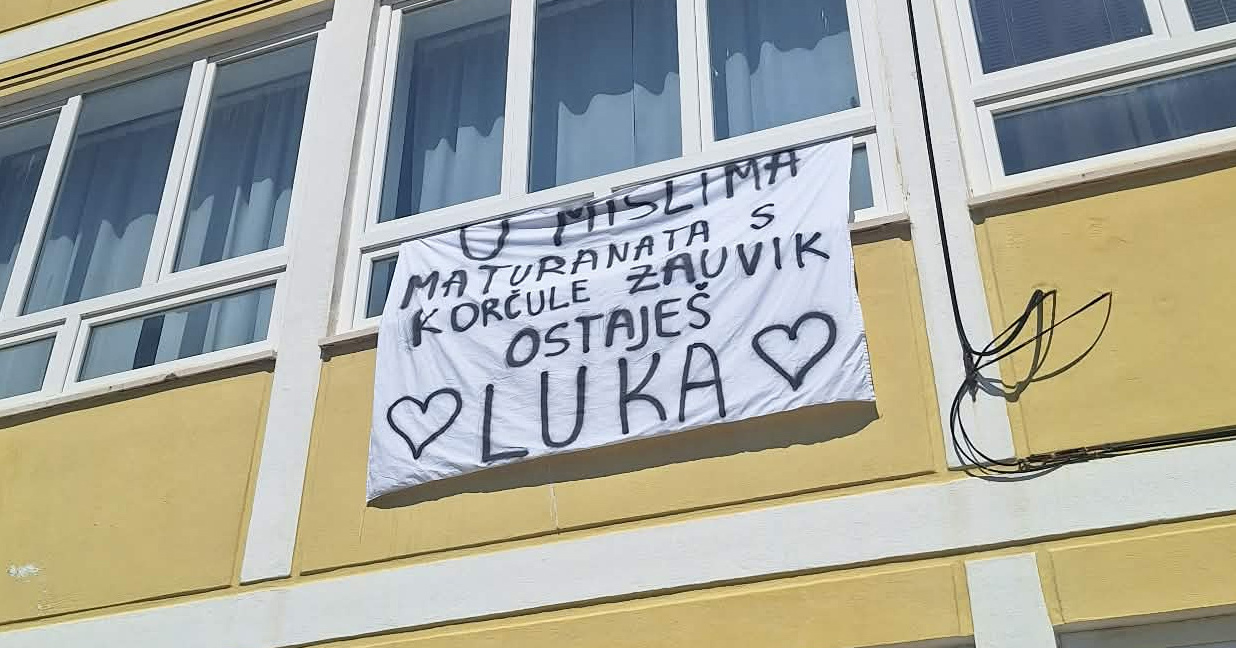 U MISLIMA
MATURANATA S
KORČULE ZAUVIK
OSTAJEŠ
LUKA